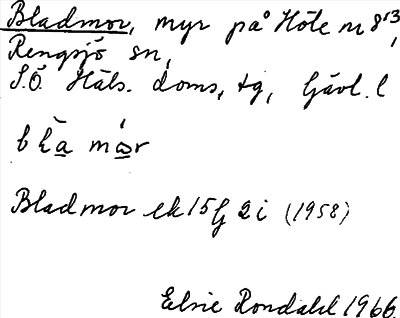 Bladmor, myr på Höle nr 8¹³,
Rengsjö sn,
S.Ö. Häls. doms. tg, Gävl. l
Bladmor ek 15G 2i (1958)
Elsie Rondahl 1966.